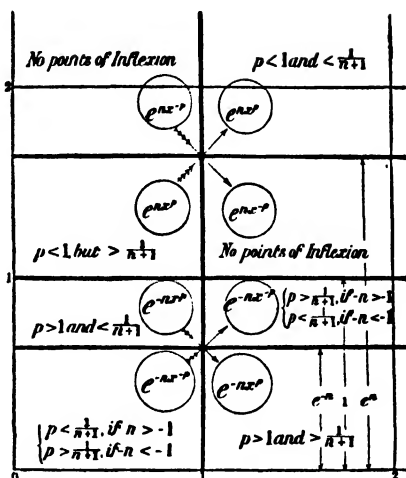 No points of Inflexion
p<1 and < 1/n+1
2
e^nx^-p
e^nx^p
e^nx^p
e^nx^-p
p<1, but > 1/n+1
No points of Inflexion
1
e^-nx^p
e^-nx^-p
{p > 1/n+1, if n > -1
p < 1/n+1, if n < -1}
p>1 and < 1/n+1
e^-nx^-p
e^-nx^p
e^-n
1
e^n
{p < 1/n+1, if n > -1
p > 1/n+1, if n < -1
p>1 and > 1/n+1
0
1
2